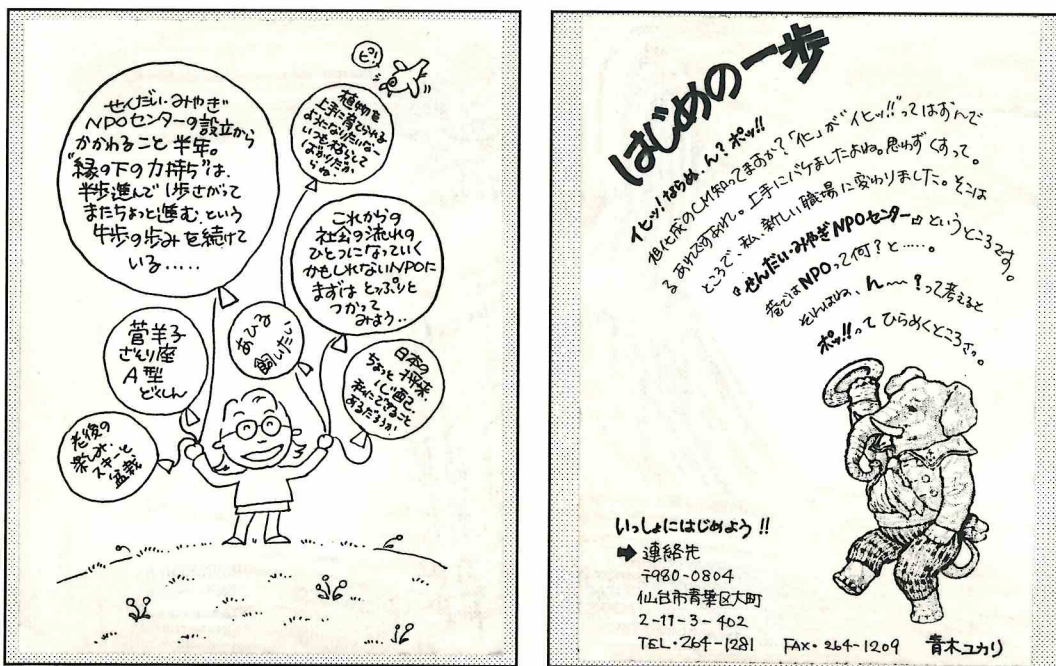 せんだい・みやぎ
NPOセンターの設立から
かかわること半年。
"縁の下の力持ち"は、
半歩進んで1歩さがって
またちょっと進む、という
牛歩の歩みを続けて
いる.....
ピ?!
植物を
上手に育てられる
ようになりたいな〜
いつも枯らして
ばかりだから
これからの
社会の流れの
ひとつになっていく
かもしれないNPOに
まずはとっぷりと
つかって
みよう..
菅羊子
さそり座
A型
どくしん
あひる
飼いたい
日本の将来
ちょっと心配し、
私にできること
あるだろうか
老後の
楽しみ、
スキーと
盆栽
はじめの一歩
イヒッ!ならぬ、ん?ポッ!!
旭化成のCM知ってますか?「化」が"イヒッ!!"ってはずんで
るあれですあれ。上手にバケましたよね。思わずくすって。
ところで、私、新しい職場に変わりました。そこは
『せんだい・みやぎNPOセンター』というところです。
巷ではNPOって何?と.....。
それはね、ん〜〜?って考えると
ポッ!!ってひらめくところさっ。
いっしょにはじめよう!!
➡ 連絡先
〒980-0804
仙台市青葉区大町
2-11-3-402
TEL・264-1281 FAX・264-1209 青木ユカリ